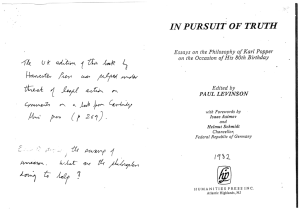 The UK edition of this book by
Harvester Press was pulped under
threat of legal action on
comments on a book from Cambridge
Univ press (p 269).
the enemy of
What are the philosophers
doing to help?
IN PURSUIT OF TRUTH
Essays on the Philosophy of Karl Popper
on the Occasion of His 80th Birthday
Edited by
PAUL LEVINSON
with Forewords by
Isaac Asimov
and
Helmut Schmidt
Chancellor,
Federal Republic of Germany
1982
hp
HUMANITIES PRESS INC.
Atlantic Highlands, NJ